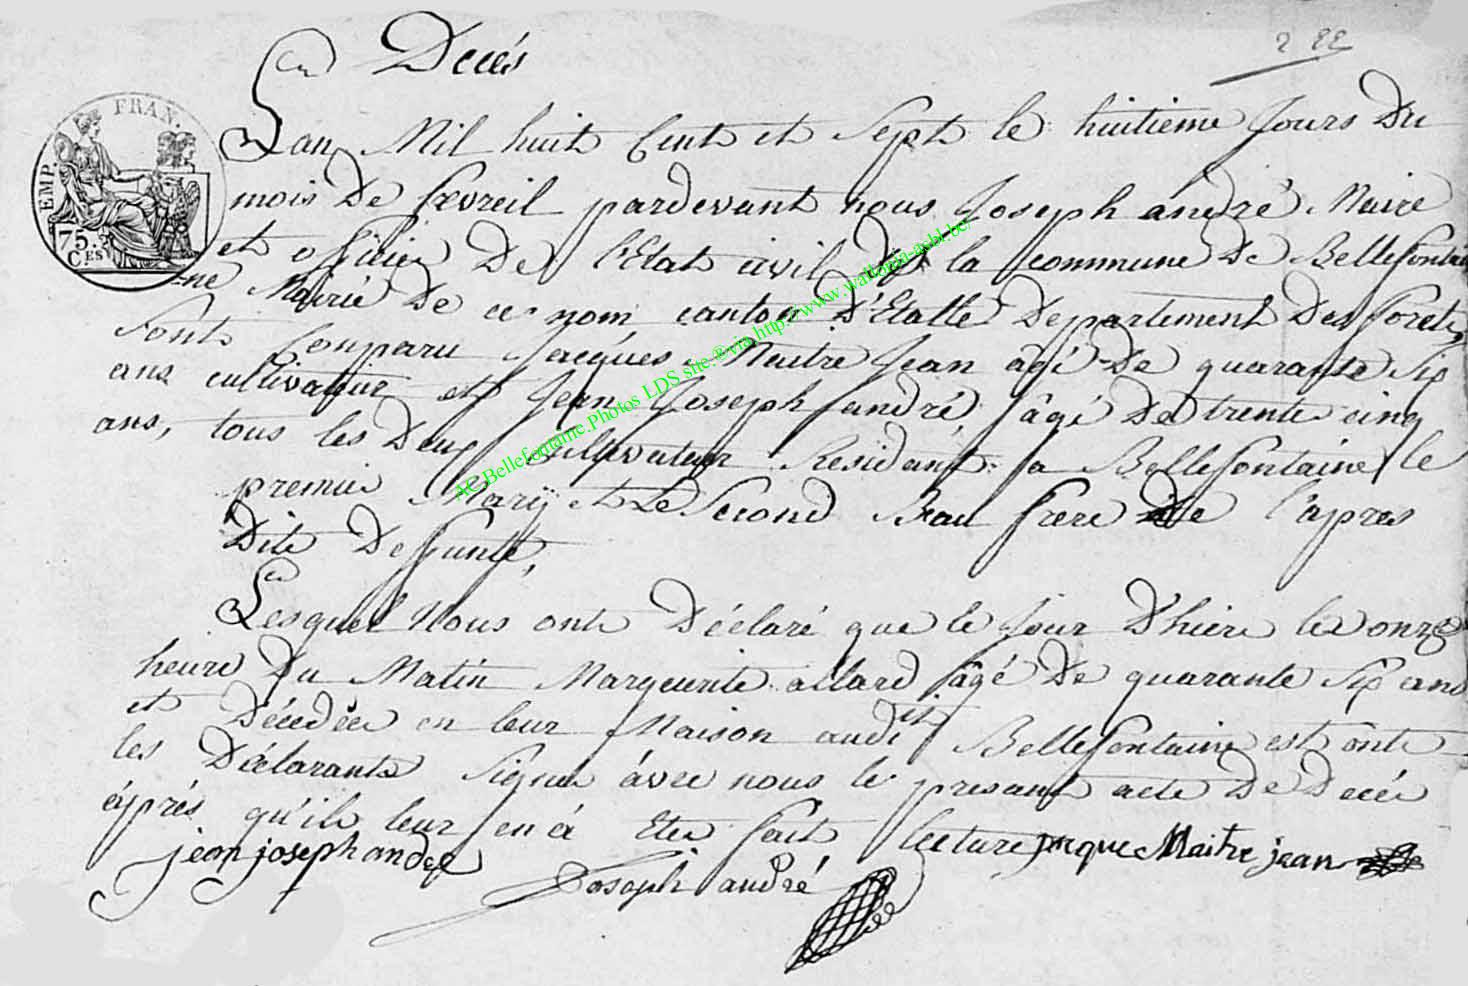 Decés
Lan Mil huit Cent et Sept le huitieme Jours Du
mois De fevreil pardevant nous Joseph andré Maire
et officier De l'Etat civil de la commune De Bellefontai
ne Mairie De ce nom canton D'Etalle Departement Des forets,
Sont Comparu Jacques Maitre Jean âgé De quarante Six
ans cultivateur et Jean Joseph andré, âgé De trente cinq
ans, tous les Deux Cultivateur Residant a Bellefontaine le
premier Marÿ et Le Second Beau frere De l'apres
Dite Deffunte,
Lesquel Nous onte Déclaré que le Jour D'hiere les onze
heure Du Matin Margeurite allard âgé De quarante Six ans
et Décedée en leur Maison audit Bellefontaine est onte
les Déclarants Signer ávec nous le presant acte De Decée
áprés qu'ile leur en á Eter fait lecture jacque Maitre jean
jean joseph andre
Joseph andré
EMP. FRAN.
75.
CES
AC Bellefontaine Photos LDS site ®via http://www.wallonia-asbl.be/